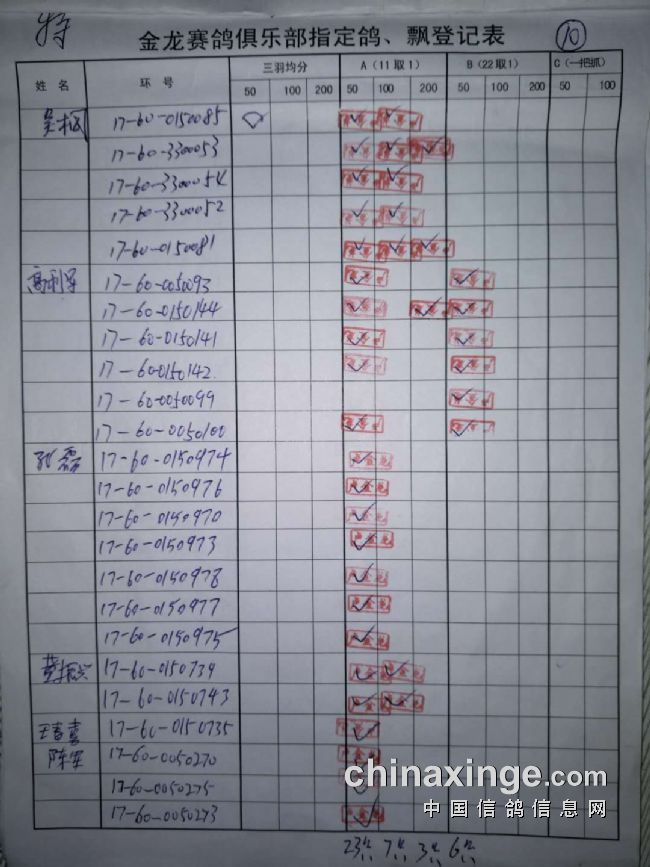 特
金龙赛鸽俱乐部指定鸽、飘登记表
10
姓名 环号 三羽均分 A(11取1) B(22取1) C(一把抓)
50 100 200 50 100 200 50 100 200 50 100
17-60-0150085
17-60-3300053
17-60-3300054
17-60-3300052
17-60-0150081
高利军 17-60-0050093
17-60-0150144
17-60-0150141
17-60-0150142
17-60-0050099
17-60-0050100
张磊 17-60-0150974
17-60-0150976
17-60-0150970
17-60-0150973
17-60-0150978
17-60-0150977
17-60-0150975
17-60-0150739
17-60-0150743
王春喜 17-60-0150735
陈军 17-60-0050270
17-60-0050275
17-60-0050273
23 7 3 6
chinaxinge.com
中国信鸽信息网